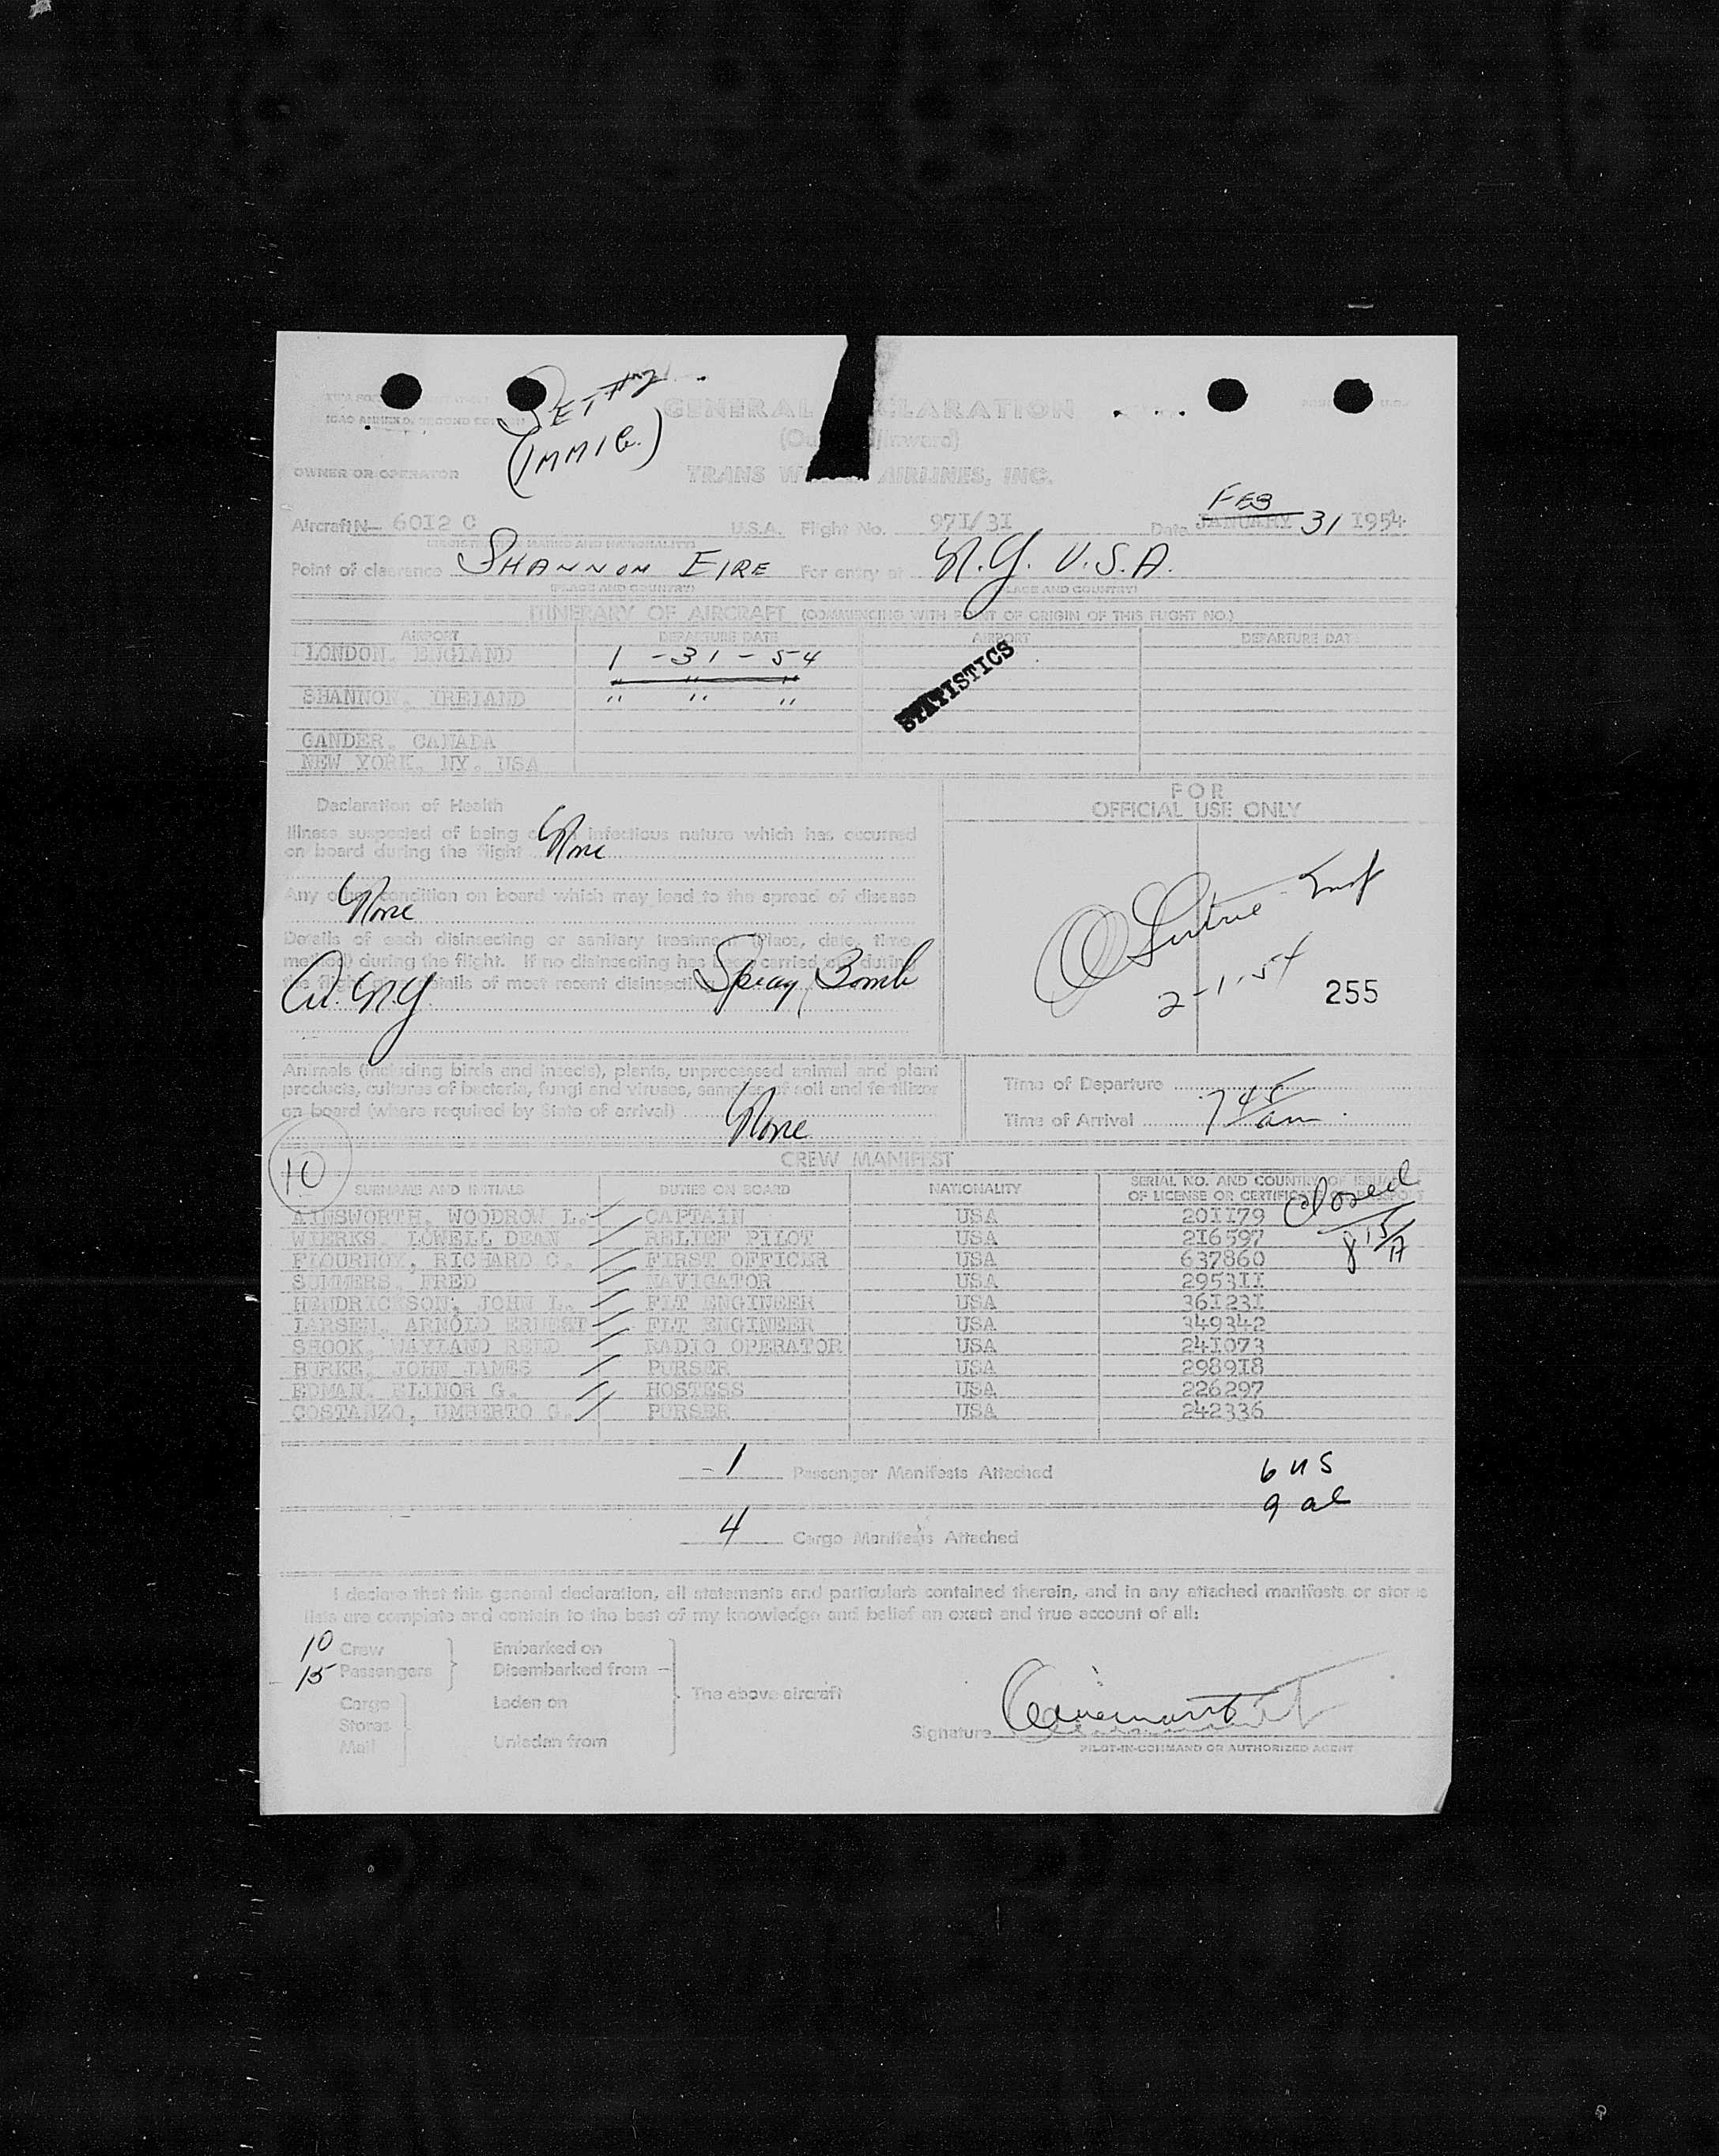 ICAO ANNEX 9, SECOND
SET #2
(IMMIG.)
GENERAL CLARATION
(Ou /Inward)
OWNER OR OPERATOR
TRANS W AIRLINES, INC.
FEB
Aircraft N- 6012 C U.S.A. Flight No. 971/31 Date JANUARY 31 1954
(REGISTRATION MARKS AND NATIONALITY)
Point of clearance SHANNON EIRE For entry at N.Y. U.S.A.
(PLACE AND COUNTRY) (PLACE AND COUNTRY)
ITINERARY OF AIRCRAFT (COMMENCING WITH POINT OF ORIGIN OF THIS FLIGHT NO.)
AIRPORT DEPARTURE DATE AIRPORT DEPARTURE DATE
LONDON, ENGLAND 1-31-54
" " "
SHANNON, IRELAND " " "
STATISTICS
GANDER, CANADA
NEW YORK, NY. USA
Declaration of Health
Illness suspected of being of infectious nature which has occurred
on board during the flight None
Any other condition on board which may lead to the spread of disease
None
Details of each disinsecting or sanitary treatment (Place, date, time,
method) during the flight. If no disinsecting has been carried out during
the flight give details of most recent disinsecting Spray Bomb
FOR
OFFICIAL USE ONLY
2-1-54
255
Animals (including birds and insects), plants, unprocessed animal and plant
products, cultures of bacteria, fungi and viruses, samples of soil and fertilizer
on board (where required by State of arrival)
None
Time of Departure
Time of Arrival 7 45 am
10
CREW MANIFEST
SURNAME AND INITIALS DUTIES ON BOARD NATIONALITY SERIAL NO. AND COUNTRY OF ISSUANCE
OF LICENSE OR CERTIFICATE
closed
8 15/A
AINSWORTH, WOODROW L. CAPTAIN USA 201179
WIERKS, LOWELL DEAN RELIEF PILOT USA 216597
FLOURNOY, RICHARD C. FIRST OFFICER USA 637860
SUMMERS, FRED NAVIGATOR USA 295311
HENDRICKSON, JOHN L. FLT ENGINEER USA 361231
LARSEN, ARNOLD ERNEST FLT ENGINEER USA 349342
SHOOK, WAYLAND REED RADIO OPERATOR USA 241073
BURKE, JOHN JAMES PURSER USA 298918
EDMAN, ELINOR G. HOSTESS USA 226297
COSTANZO, UMBERTO G. PURSER USA 242336
1 Passenger Manifests Attached
6 US
9 al
4 Cargo Manifests Attached
I declare that this general declaration, all statements and particulars contained therein, and in any attached manifests or stores
lists are complete and contain to the best of my knowledge and belief an exact and true account of all:
10 Crew Embarked on
15 Passengers Disembarked from
Cargo Laden on The above aircraft
Stores
Mail Unladen from
Signature
PILOT-IN-COMMAND OR AUTHORIZED AGENT